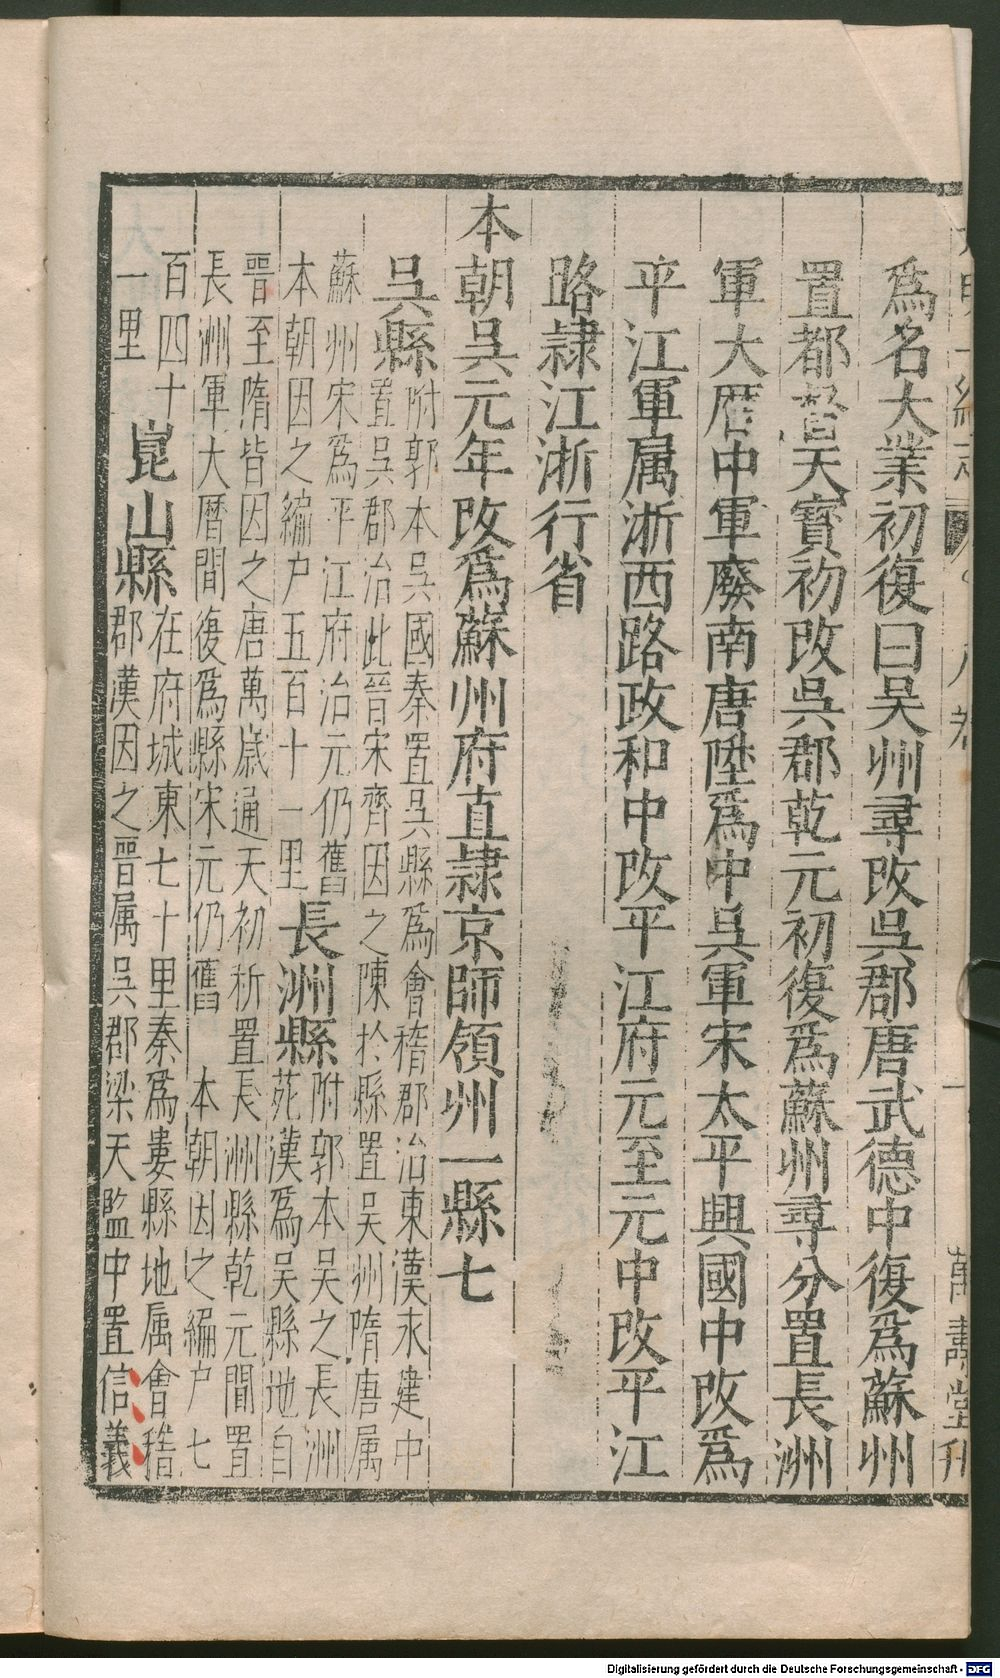 爲名大業初復曰吴州尋改吳郡唐武德中復爲蘇州
置都督天寳初改吳郡乾元初復爲蘇州尋分置長洲
軍大曆中軍廢南唐陞爲中吳軍宋太平興國中改爲
平江軍属浙西路政和中改平江府元至元中改平江
路隷江浙行省
本朝吳元年改爲蘇州府直隷京師領州一縣七
吳縣
附郭本吳國秦置吳縣爲會稽郡治東漢永建中
置吳郡治此晉宋齊因之陳於縣置吴州隋唐属
蘇州宋爲平江府治元仍舊
本朝因之編户五百十一里
長洲縣
附郭本吴之長洲
苑漢爲吴縣地自
晉至隋皆因之唐萬歲通天初析置長洲縣乾元間置
長洲軍大曆間復爲縣宋元仍舊 本朝因之編户七
百四十
一里
崑山縣
在府城東七十里秦爲婁縣地属會稽
郡漢因之晉属吳郡梁天監中置信義
萬壽堂刊
Digitalisierung gefördert durch die Deutsche Forschungsgemeinschaft - DFG